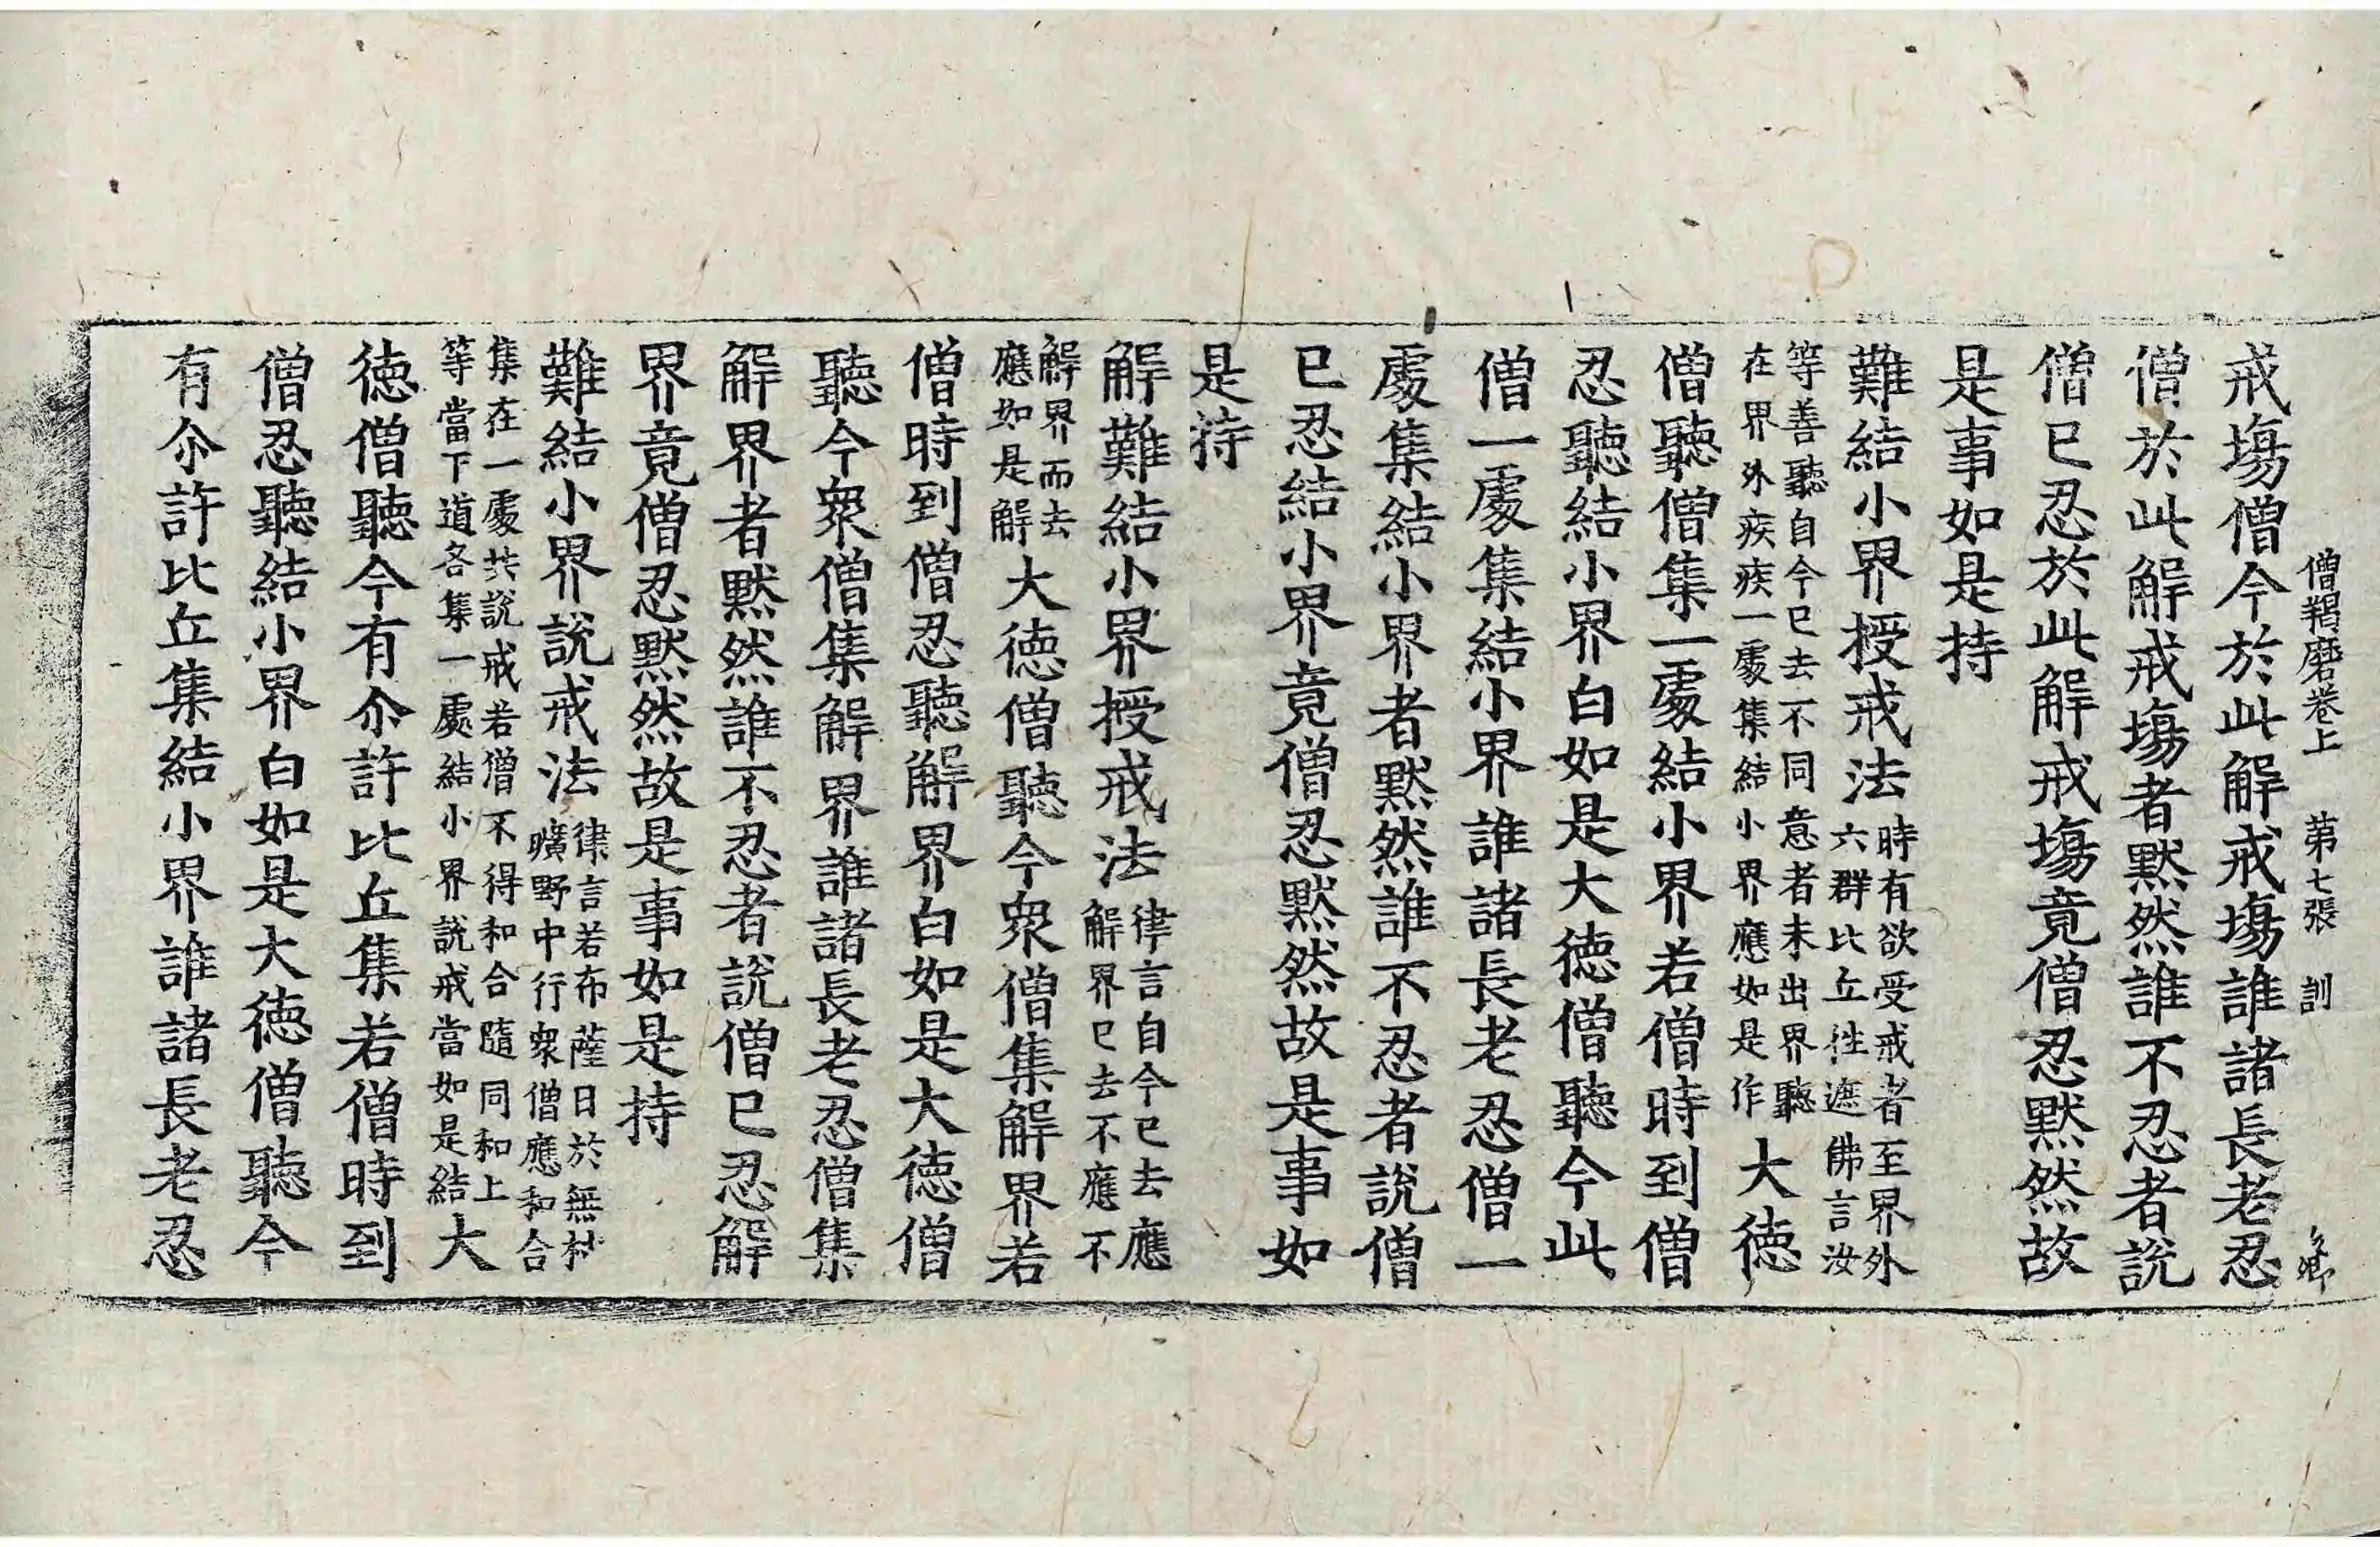 僧羯磨卷上 第七張 訓
戒塲僧今於此解戒塲誰諸長老忍
僧於此解戒塲者黙然誰不忍者說
僧已忍於此解戒塲竟僧忍黙然故
是事如是持
難結小界授戒法時有欲受戒者至界外
六群比丘往遮佛言汝
等善聽自今已去不同意者未出界聽
在界外疾疾一處集結小界應如是作大德
僧聽僧集一處結小界若僧時到僧
忍聽結小界白如是大德僧聽今此
僧一處集結小界誰諸長老忍僧一
處集結小界者黙然誰不忍者說僧
已忍結小界竟僧忍黙然故是事如
是持
解難結小界授戒法律言自今已去應
解界已去不應不
解界而去
應如是解大德僧聽今衆僧集解界若
僧時到僧忍聽解界白如是大德僧
聽今衆僧集解界誰諸長老忍僧集
解界者黙然誰不忍者說僧已忍解
界竟僧忍黙然故是事如是持
難結小界說戒法律言若布薩日於無村
曠野中行衆僧應和合
集在一處共說戒若僧不得和合隨同和上
等當下道各集一處結小界說戒當如是結大
德僧聽今有尒許比丘集若僧時到
僧忍聽結小界白如是大德僧聽今
有尒許比丘集結小界誰諸長老忍